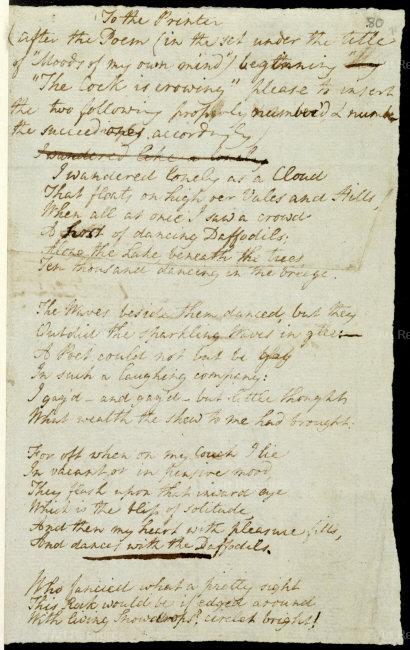 80
To the Printer
(after the Poem (in the set under the title
of "Moods of my own mind") beginning
"The Cock is crowing" please to insert
the two following properly numbered & number
the succeeding ones accordingly)
I wandered like a lonely
I wandered lonely as a Cloud
That floats on high o'er Vales and Hills,
When all at once I saw a crowd
A host of dancing Daffodils;
Along the Lake, beneath the trees
Ten thousand dancing in the breeze.
The Waves beside them danced, but they
Outdid the sparkling Waves in glee:—
A Poet could not but be gay
In such a laughing company:
I gaz'd – and gaz'd – but little thought
What wealth the shew to me had brought:
For oft when on my Couch I lie
In vacant or in pensive mood
They flash upon that inward eye
Which is the bliss of solitude
And then my heart with pleasure fills,
And dances with the Daffodils.
Who fancied what a pretty sight
This Rock would be if edged around
With living Snowdrops? circlet bright!